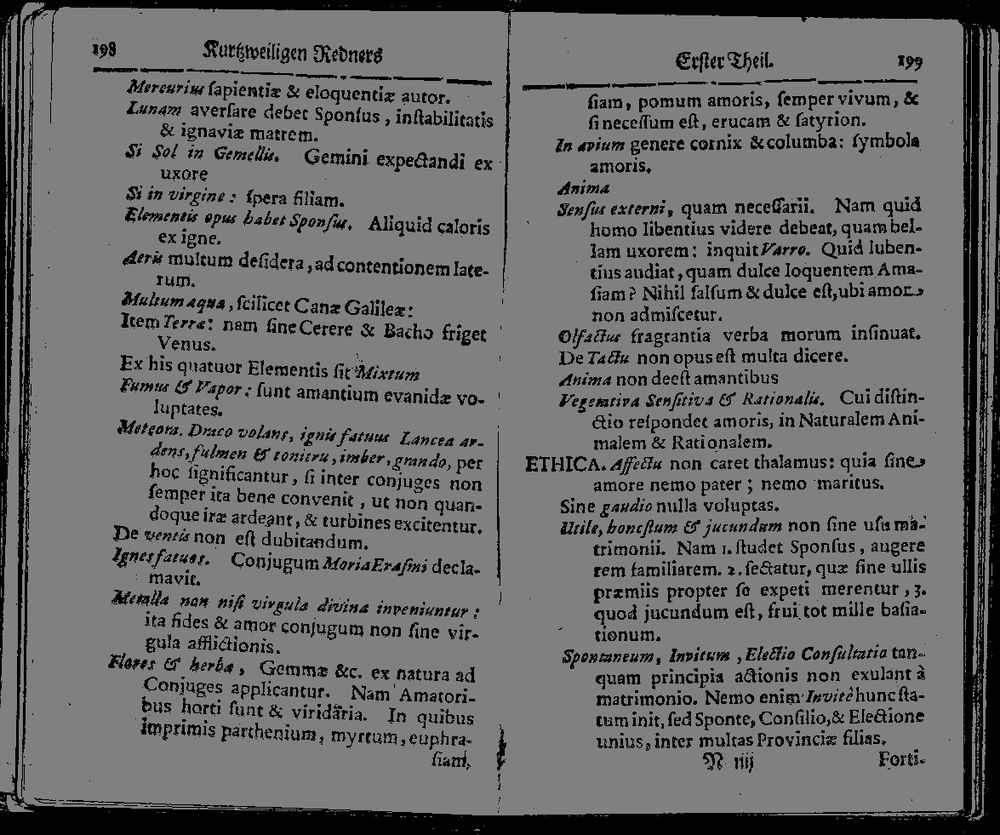 198 Kurtzweiligen Redners
Mercurius sapientiæ & eloquentiæ autor.
Lunam aversare debet Sponsus, instabilitatis
& ignaviæ matrem.
Si Sol in Gemellis. Gemini expectandi ex
uxore
Si in virgine: spera filiam.
Elementis opus habet Sponsus. Aliquid caloris
ex igne.
Aeris multum desidera, ad contentionem late-
rum.
Multum aqua, scilicet Canæ Galileæ:
Item Terra: nam sine Cerere & Bacho friget
Venus.
Ex his quatuor Elementis sit Mixtum
Fumus & Vapor: sunt amantium evanidæ vo-
luptates.
Meteora. Draco volans, ignis fatuus Lancea ar-
dens, fulmen & tonitru, imber, grando, per
hoc significantur, si inter conjuges non
semper ita bene convenit, ut non quan-
doque iræ ardeant, & turbines excitentur.
De ventis non est dubitandum.
Ignes fatuos. Conjugum Moria Erasmi decla-
mavit.
Metalla non nisi virgula divina inveniuntur:
ita fides & amor conjugum non sine vir-
gula afflictionis.
Flores & herba, Gemmæ &c. ex natura ad
Conjuges applicantur. Nam Amatori-
bus horti sunt & viridaria. In quibus
imprimis parthenium, myrtum, euphra-
siam,
Erster Theil. 199
siam, pomum amoris, semper vivum, &
si necessum est, erucam & satyrion.
In avium genere cornix & columba: symbola
amoris.
Anima
Sensus externi, quam necessarii. Nam quid
homo libentius videre debeat, quam bel-
lam uxorem: inquit Varro. Quid luben-
tius audiat, quam dulce loquentem Ama-
siam? Nihil salsum & dulce est, ubi amor
non admiscetur.
Olfactus fragrantia verba morum insinuat.
De Tactu non opus est multa dicere.
Anima non deest amantibus
Vegetativa Sensitiva & Rationalis. Cui distin-
ctio respondet amoris, in Naturalem Ani-
malem & Rationalem.
ETHICA. Affectu non caret thalamus: quia sine
amore nemo pater; nemo maritus.
Sine gaudio nulla voluptas.
Utile, honestum & jucundum non sine usu ma-
trimonii. Nam 1. studet Sponsus, augere
rem familiarem. 2. sectatur, quæ sine ullis
præmiis propter se expeti merentur, 3.
quod jucundum est, frui tot mille basia-
tionum.
Spontaneum, Invitum, Electio Consultatio tan-
quam principia actionis non exulant à
matrimonio. Nemo enim Invitè hunc sta-
tum init, sed Sponte, Consilio, & Electione
unius, inter multas Provinciæ filias.
N iiij Forti-